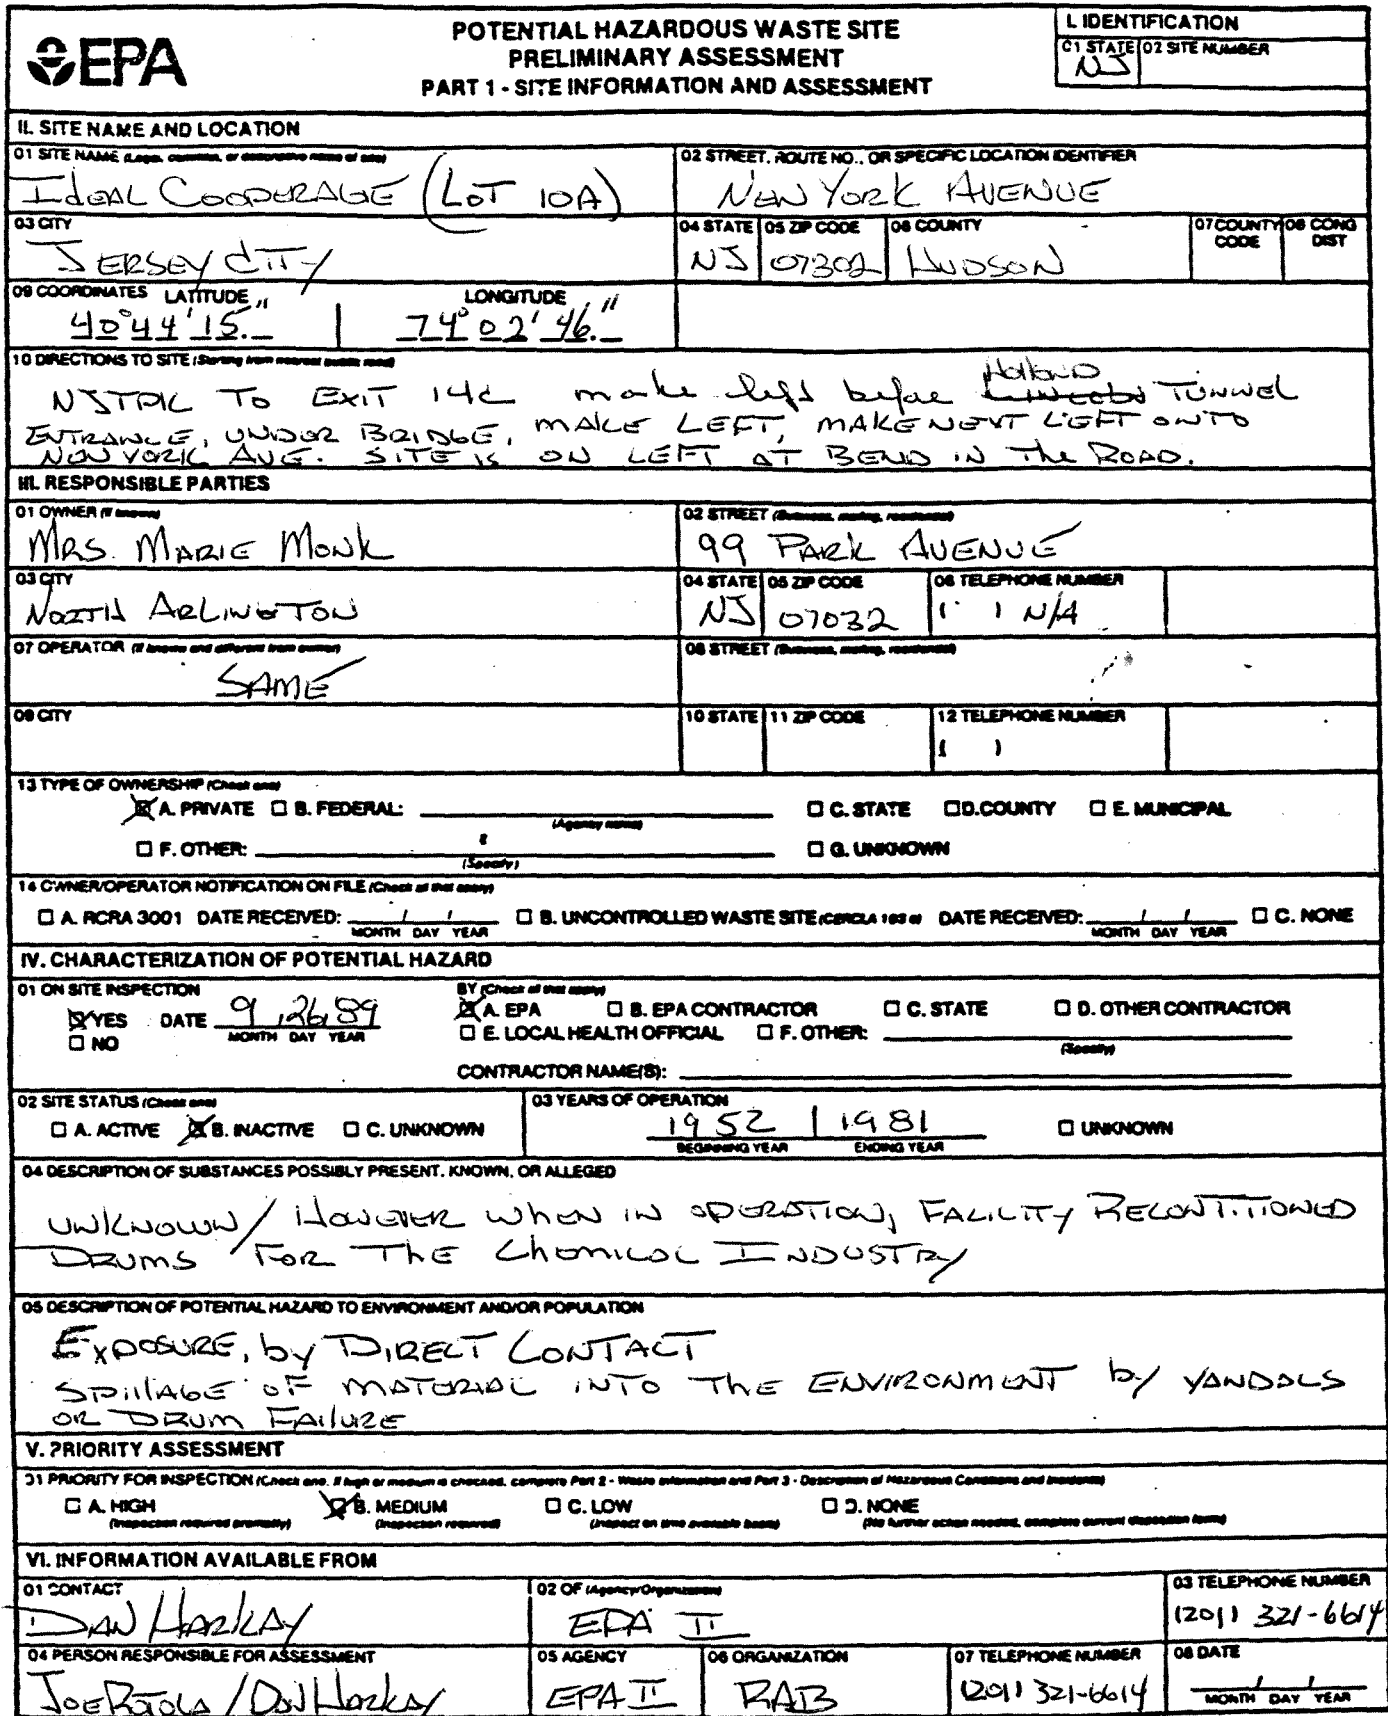 EPA
POTENTIAL HAZARDOUS WASTE SITE
PRELIMINARY ASSESSMENT
PART 1 - SITE INFORMATION AND ASSESSMENT
I. IDENTIFICATION
01 STATE 02 SITE NUMBER
NJ
II. SITE NAME AND LOCATION
01 SITE NAME (Legal, common, or descriptive name of site)
IDEAL COOPERAGE (LOT 10A)
02 STREET, ROUTE NO., OR SPECIFIC LOCATION IDENTIFIER
NEW YORK AVENUE
03 CITY
JERSEY CITY
04 STATE 05 ZIP CODE 06 COUNTY 07 COUNTY CODE 08 CONG DIST
NJ 07302 HUDSON
09 COORDINATES LATITUDE LONGITUDE
40° 44' 15." 74° 02' 46."
10 DIRECTIONS TO SITE (Starting from nearest public road)
NJTPK TO EXIT 14C make left before HOLLAND TUNNEL
ENTRANCE, UNDER BRIDGE, MAKE LEFT, MAKE NEXT LEFT ONTO
NEW YORK AVE. SITE IS ON LEFT AT BEND IN The ROAD.
III. RESPONSIBLE PARTIES
01 OWNER (If known)
MRS. MARIE MONK
02 STREET (Business, mailing, residential)
99 PARK AVENUE
03 CITY
NORTH ARLINGTON
04 STATE 05 ZIP CODE 06 TELEPHONE NUMBER
NJ 07032 ( ) N/A
07 OPERATOR (If known and different from owner)
SAME
08 STREET (Business, mailing, residential)
09 CITY
10 STATE 11 ZIP CODE 12 TELEPHONE NUMBER
( )
13 TYPE OF OWNERSHIP (Check one)
☒ A. PRIVATE ☐ B. FEDERAL: (Agency name) ☐ C. STATE ☐ D. COUNTY ☐ E. MUNICIPAL
☐ F. OTHER: (Specify) ☐ G. UNKNOWN
14 OWNER/OPERATOR NOTIFICATION ON FILE (Check all that apply)
☐ A. RCRA 3001 DATE RECEIVED: / / ☐ B. UNCONTROLLED WASTE SITE (CERCLA 103 c) DATE RECEIVED: / / ☐ C. NONE
MONTH DAY YEAR MONTH DAY YEAR
IV. CHARACTERIZATION OF POTENTIAL HAZARD
01 ON SITE INSPECTION
☒ YES DATE 9/26/89
☐ NO MONTH DAY YEAR
BY (Check all that apply)
☒ A. EPA ☐ B. EPA CONTRACTOR ☐ C. STATE ☐ D. OTHER CONTRACTOR
☐ E. LOCAL HEALTH OFFICIAL ☐ F. OTHER: (Specify)
CONTRACTOR NAME(S):
02 SITE STATUS (Check one)
☐ A. ACTIVE ☒ B. INACTIVE ☐ C. UNKNOWN
03 YEARS OF OPERATION
1952 | 1981 ☐ UNKNOWN
BEGINNING YEAR ENDING YEAR
04 DESCRIPTION OF SUBSTANCES POSSIBLY PRESENT, KNOWN, OR ALLEGED
UNKNOWN / HOWEVER WHEN IN OPERATION, FACILITY RECONTITIONED
DRUMS FOR THE ChEMICAL INDUSTRY
05 DESCRIPTION OF POTENTIAL HAZARD TO ENVIRONMENT AND/OR POPULATION
EXPOSURE, by DIRECT CONTACT
SPillAGE OF MATERIAL INTO THE ENVIRONMENT by VANDALS
OR DRUM FAILURE
V. PRIORITY ASSESSMENT
01 PRIORITY FOR INSPECTION (Check one. If high or medium is checked, complete Part 2 - Waste Information and Part 3 - Description of Hazardous Conditions and Incidents)
☐ A. HIGH ☒ B. MEDIUM ☐ C. LOW ☐ D. NONE
(Inspection required promptly) (Inspection required) (Inspect on time available basis) (No further action needed, complete current disposition form)
VI. INFORMATION AVAILABLE FROM
01 CONTACT
DAN HARKAY
02 OF (Agency/Organization)
EPA II
03 TELEPHONE NUMBER
(201) 321-6614
04 PERSON RESPONSIBLE FOR ASSESSMENT
JOE ROTOLA / DAN HARKAY
05 AGENCY
EPA II
06 ORGANIZATION
RAB
07 TELEPHONE NUMBER
(201) 321-6614
08 DATE
/ /
MONTH DAY YEAR